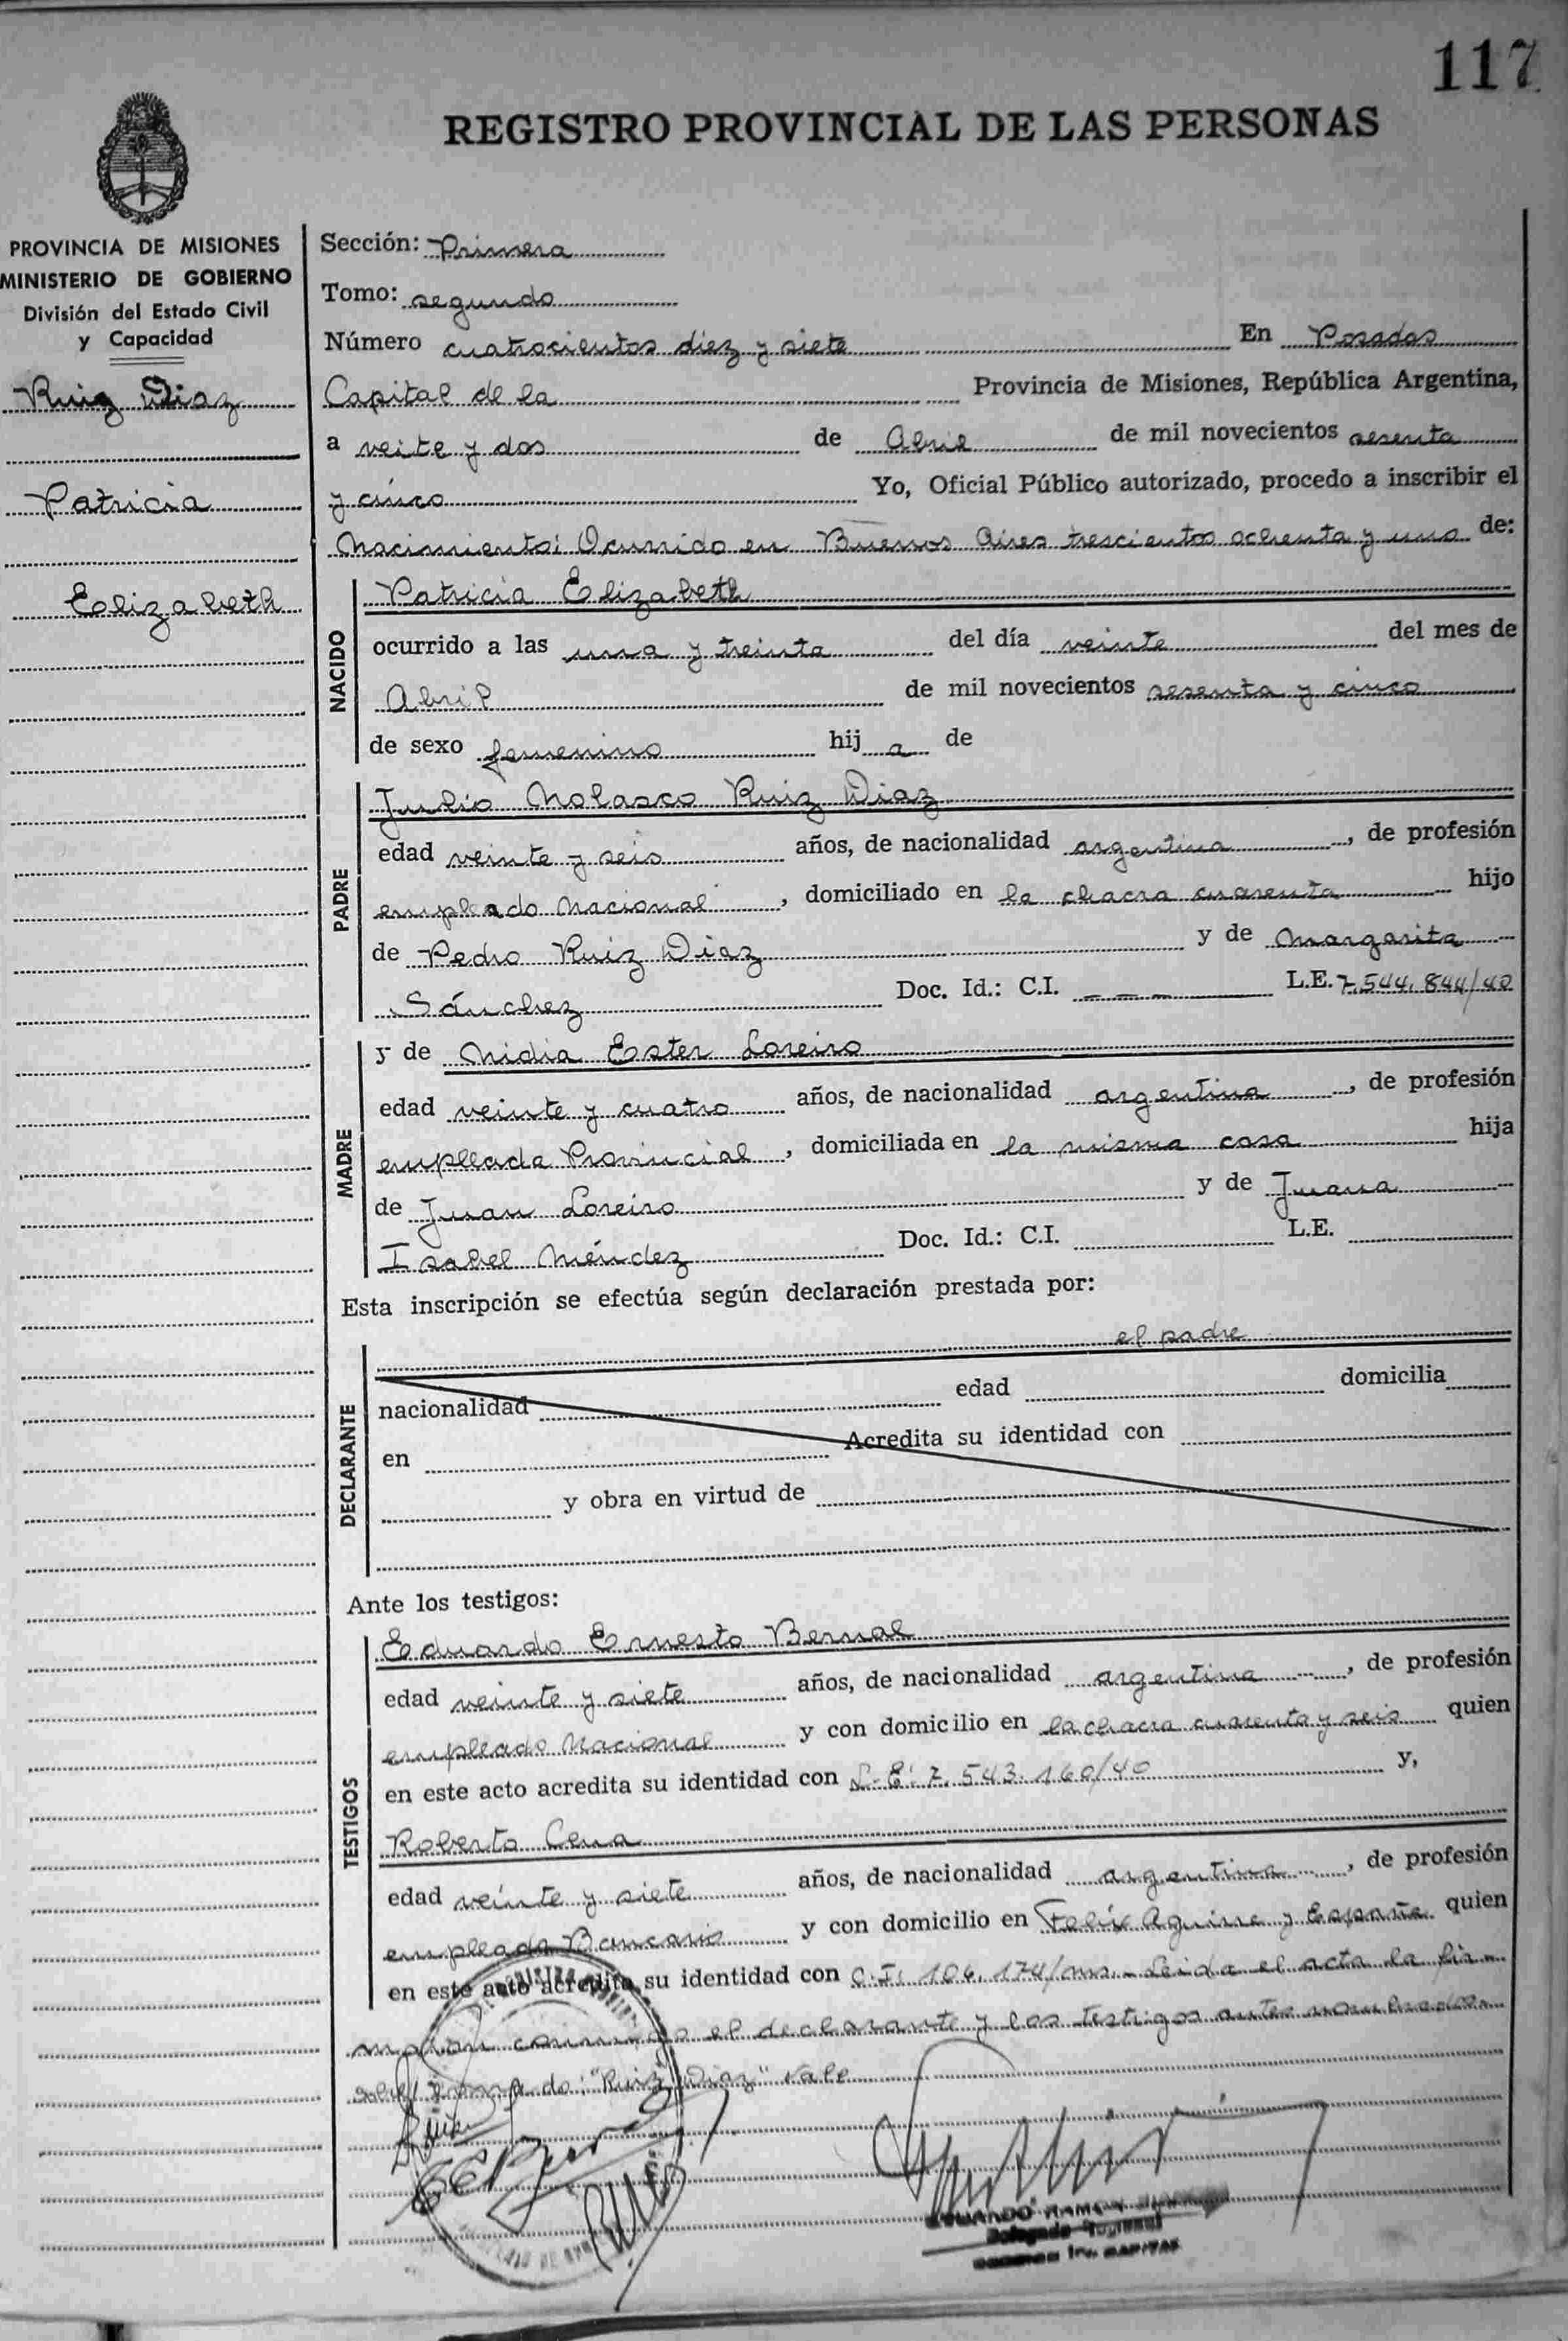 117
REGISTRO PROVINCIAL DE LAS PERSONAS
PROVINCIA DE MISIONES
MINISTERIO DE GOBIERNO
División del Estado Civil
y Capacidad
Ruiz Diaz
Patricia
Elizabeth
Sección: Primera
Tomo: segundo
Número cuatrocientos diez y siete En Posadas
Capital de la Provincia de Misiones, República Argentina,
a veite y dos de Abril de mil novecientos sesenta
y cinco Yo, Oficial Público autorizado, procedo a inscribir el
Nacimiento: Ocurrido en Buenos Aires trescientos ochenta y uno de:
NACIDO
Patricia Elizabeth
ocurrido a las una y treinta del día veinte del mes de
Abril de mil novecientos sesenta y cinco
de sexo femenino hij a de
PADRE
Julio Nolasco Ruiz Diaz
edad veinte y seis años, de nacionalidad argentina, de profesión
empleado Nacional, domiciliado en la chacra cuarenta hijo
de Pedro Ruiz Diaz y de Margarita
Sánchez Doc. Id.: C.I. – – – L.E. 7.544.844/40
MADRE
y de Nidia Ester Loreiro
edad veinte y cuatro años, de nacionalidad argentina, de profesión
empleada Provincial, domiciliada en la misma casa hija
de Juan Loreiro y de Juana
Isabel Méndez Doc. Id.: C.I. L.E.
Esta inscripción se efectúa según declaración prestada por:
DECLARANTE
el padre
nacionalidad edad domicilia
en Acredita su identidad con
y obra en virtud de
Ante los testigos:
TESTIGOS
Eduardo Ernesto Bernal
edad veinte y siete años, de nacionalidad argentina, de profesión
empleado Nacional y con domicilio en la chacra cuarenta y seis quien
en este acto acredita su identidad con L.E: 7.543.160/40 y,
Roberto Cena
edad veinte y siete años, de nacionalidad argentina, de profesión
empleado Bancario y con domicilio en Felix Aguirre y España quien
en este acto acredita su identidad con C.I. 104.174/ms.- Leida el acta la fir-
maron conmigo el declarante y los testigos antes nombrados.
"Ruiz Diaz" vale
EDUARDO RAMON